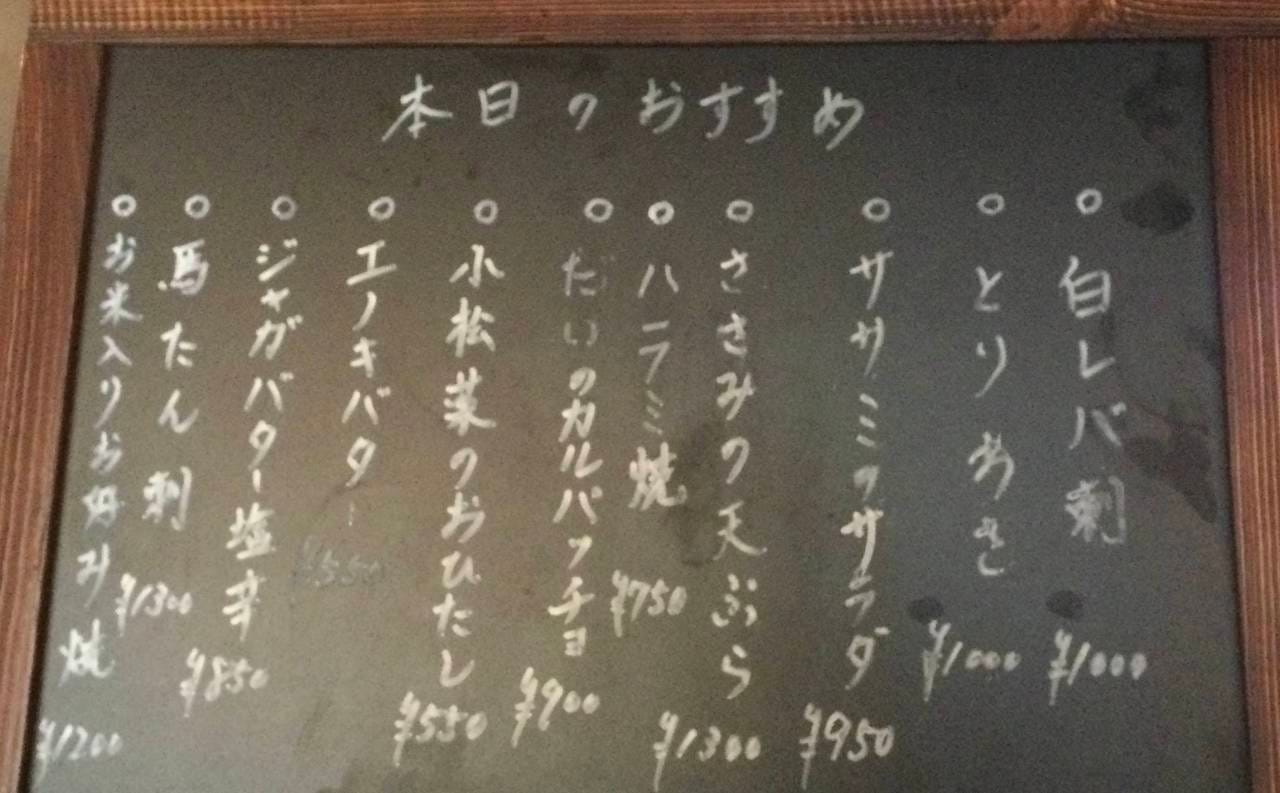 本日のおすすめ
○白レバ刺 ¥1000
○とりわさ ¥1000
○ササミのサラダ ¥950
○ささみの天ぷら ¥1300
○ハラミ焼 ¥750
○だいのカルパッチョ ¥900
○小松菜のおひたし ¥550
○エノキバター ¥550
○ジャガバター塩辛 ¥850
○馬たん刺 ¥1300
○お米入りお好み焼 ¥1200